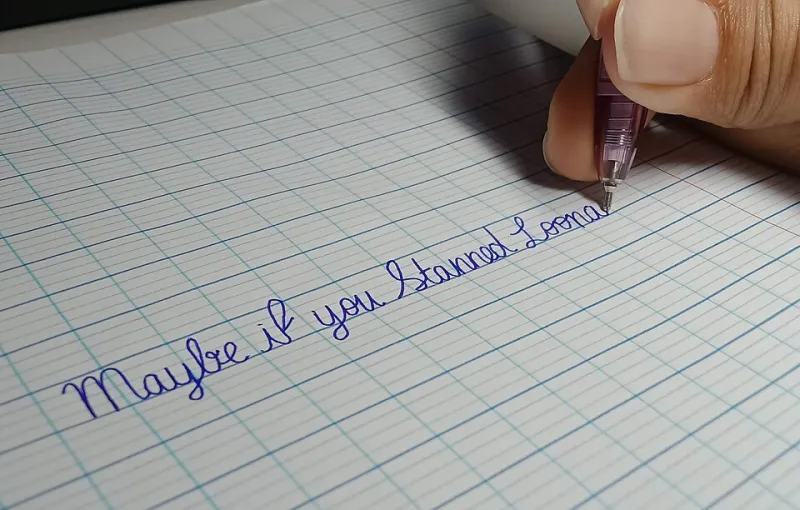 Maybe if you Stanned Loona